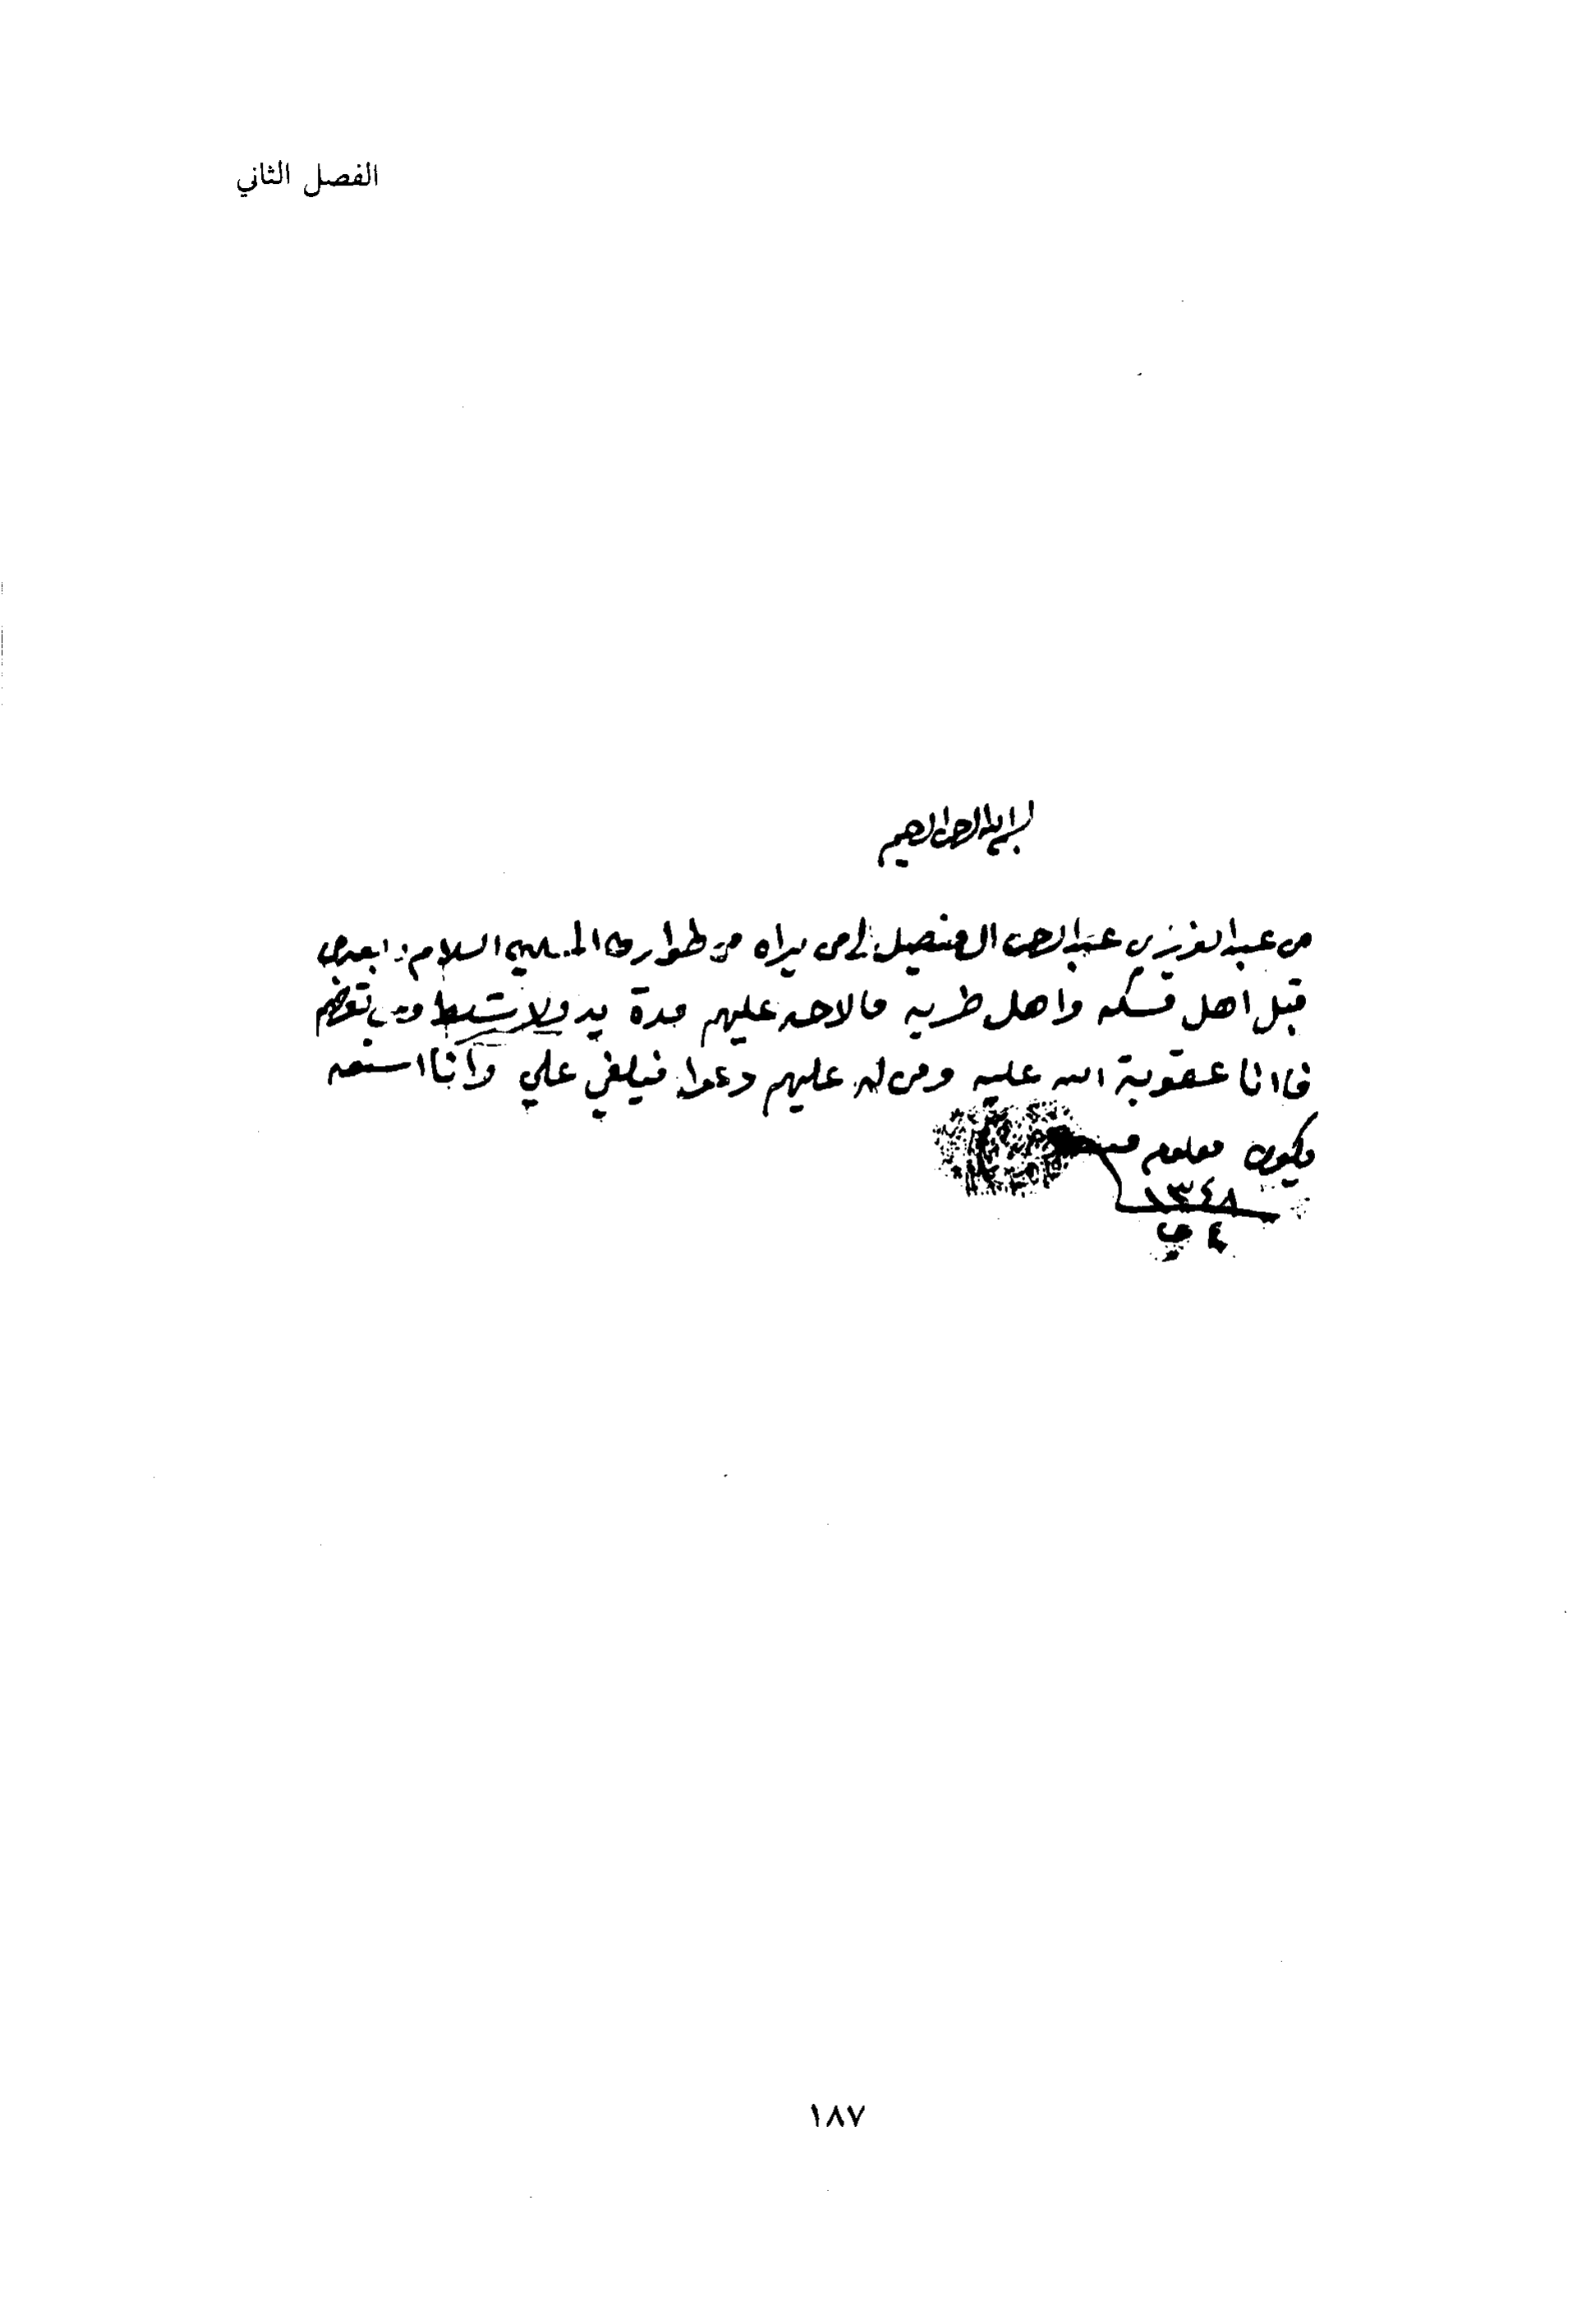 الفصل الثاني
بسم الله الرحمن الرحيم
من عبد العزيز بن عبد الرحمن الفيصل إلى من يراه من طوارف المسلمين السلام وبعد من
قبل اهل مسكه واهل ضريه فالاحد عليهم مدة يد ومن تعرضهم
فاانا عقوبة الله عليه ومن له عليهم دعوا فيلفي علي وأنا
يكون معلوم
١٣٤٨
٤
١٨٧